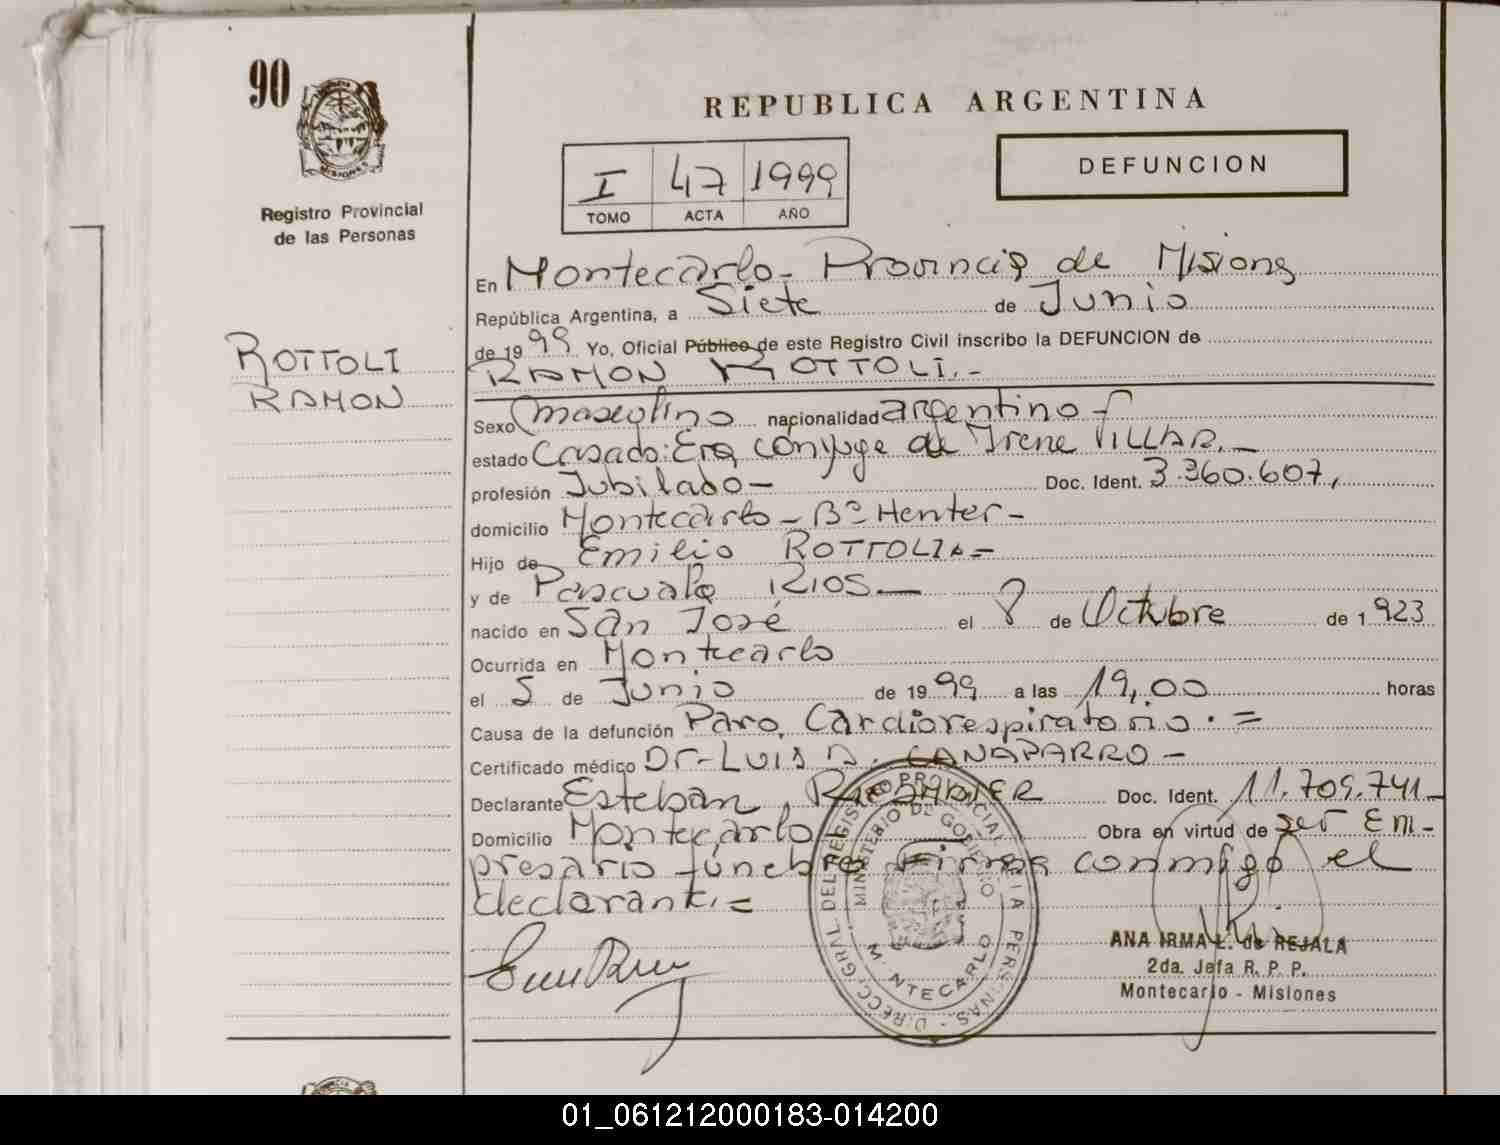 90
MISIONES
Registro Provincial
de las Personas
ROTTOLI
RAMON
REPUBLICA ARGENTINA
I 47 1999
TOMO ACTA AÑO
DEFUNCION
En Montecarlo - Provincia de Misiones
República Argentina, a Siete de Junio
de 1999 Yo, Oficial Público de este Registro Civil inscribo la DEFUNCION de
RAMON ROTTOLI.-
Sexo masculino nacionalidad argentino
estado Casado: Era conyuge de Irene VILLAR.-
profesión Jubilado- Doc. Ident. 3.360.607,
domicilio Montecarlo - Bº Henter-
Hijo de Emilio ROTTOLI.=
y de Pascuala RIOS-
nacido en San José el 8 de Octubre de 1923
Ocurrida en Montecarlo
el 5 de Junio de 1999 a las 19,00 horas
Causa de la defunción Paro Cardiorespiratorio.=
Certificado médico Dr- LUIS A. CANAPARRO-
Declarante Esteban Doc. Ident. 11.709.741-
Domicilio Montecarlo Obra en virtud de ser Em-
presario fúnebre Firma conmigo el
declarante.=
DIRECC. GRAL. DEL REGISTRO PROVINCIAL DE LA PERSONAS -
MINISTERIO DE GOBIERNO
M NTECARLO
ANA IRMA L. de REJALA
2da. Jefa R. P. P.
Montecarlo - Misiones
01_061212000183-014200